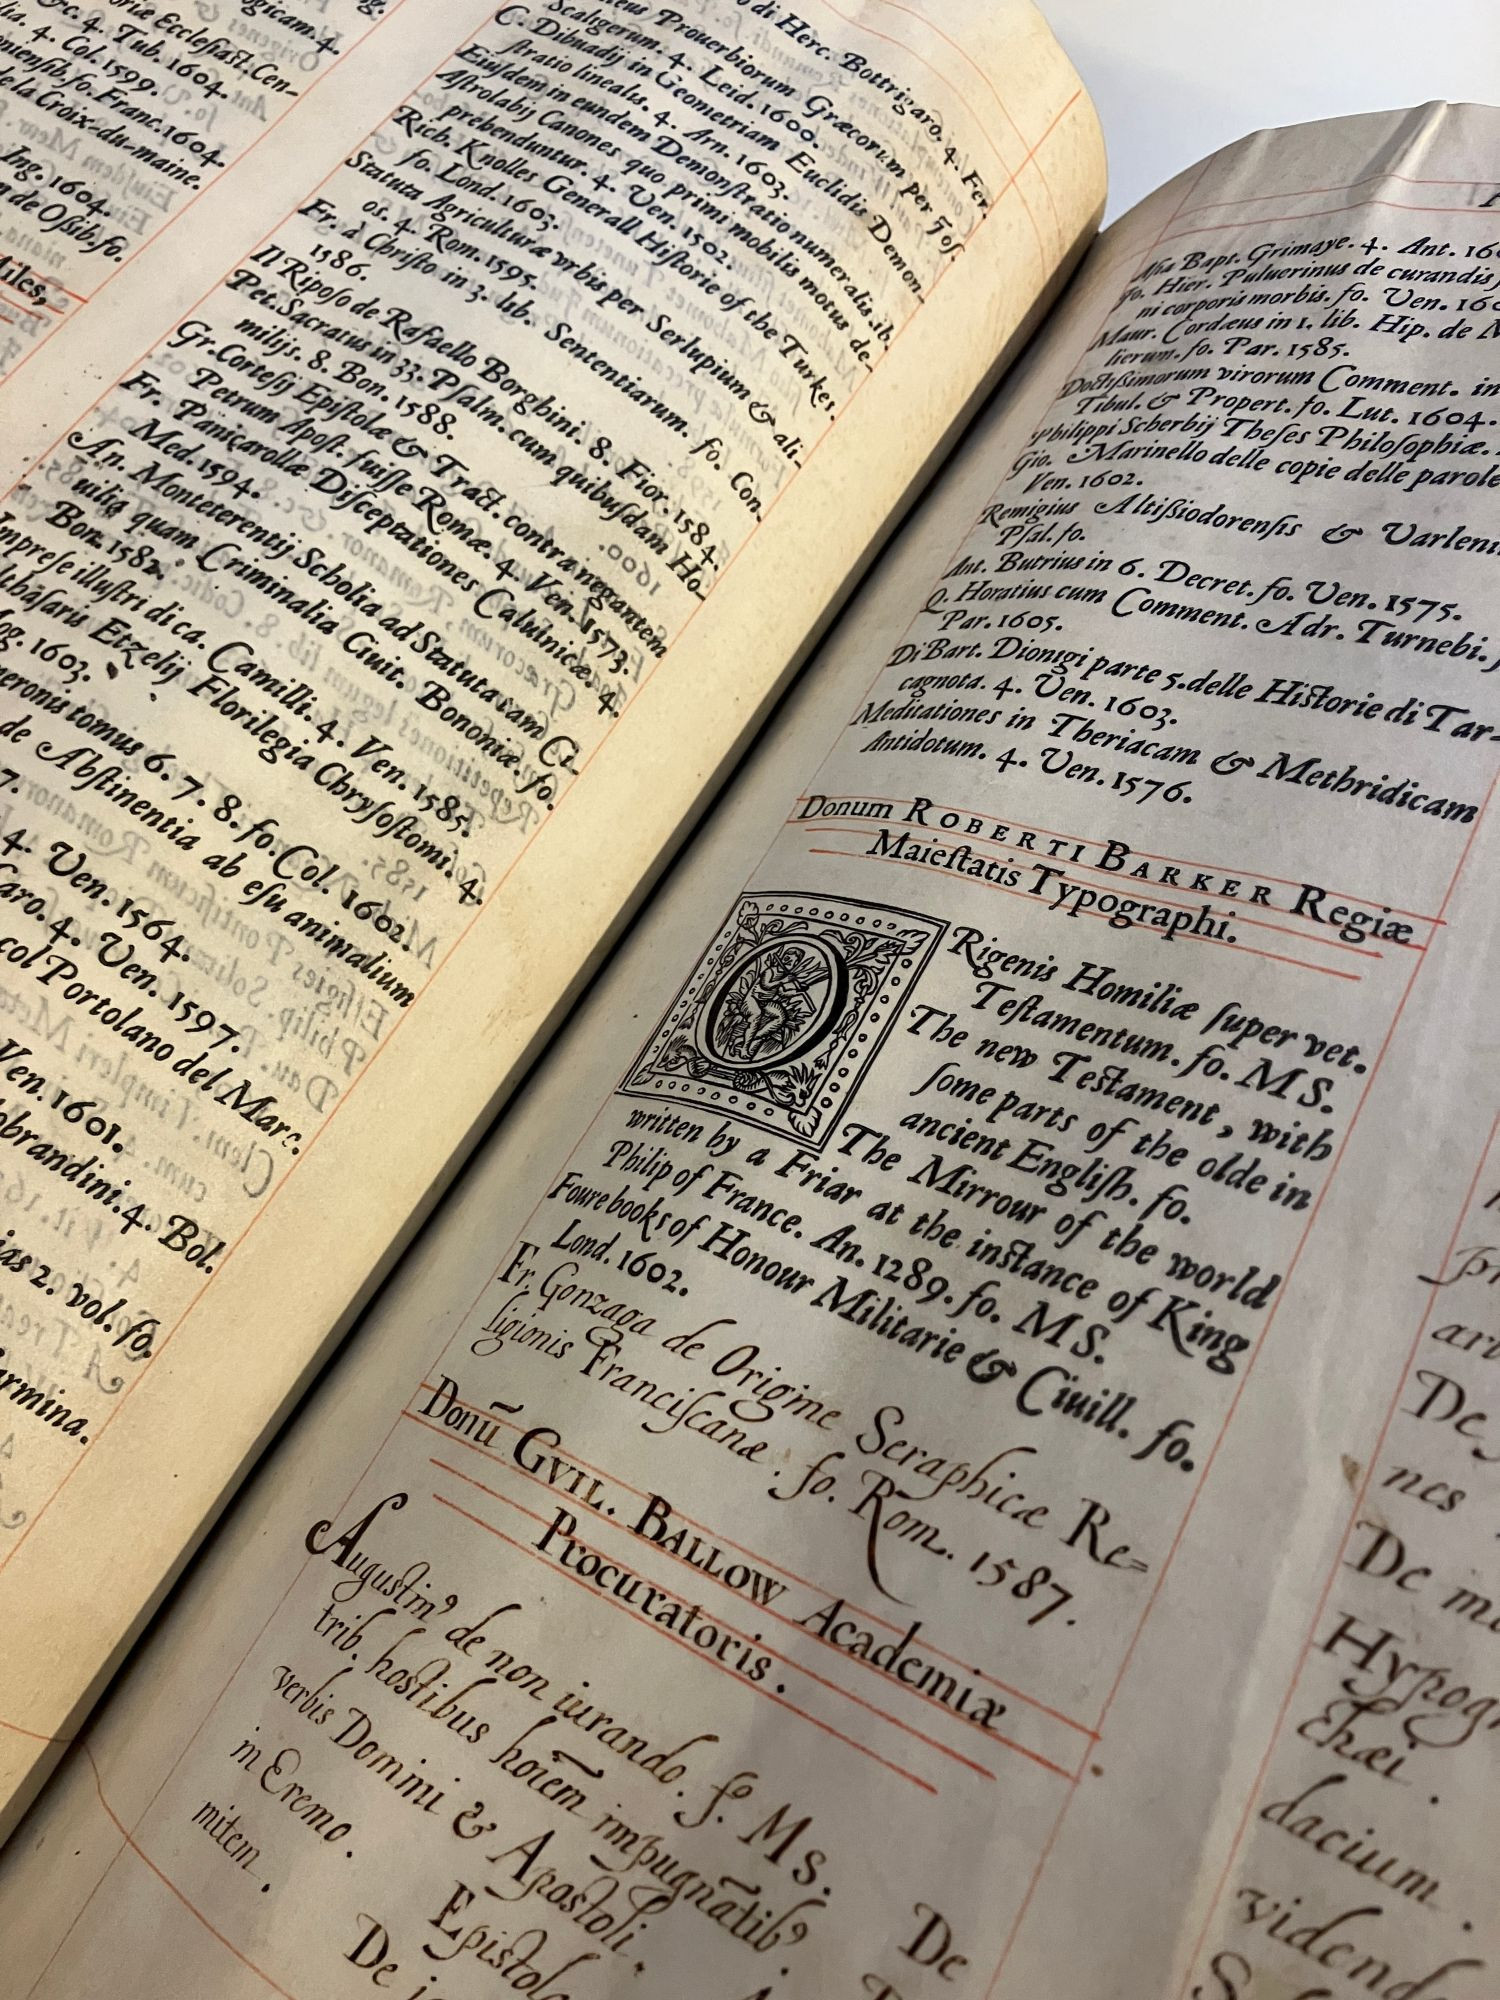 logicam. 4.
riæ Ecclesiast. Cen-
&c. 4. Tub. 1604.
lia. 4. Col. 1599.
niensib. fo. Franc. 1604.
de la Croix-du-maine.
Ing. 1604.
n de Oſsib. fo.
Miles,
o di Herc. Bottrigaro. 4. Fer.
Prouerbiorum Græcorum per Ioſ.
Scaligerum. 4. Leid. 1600.
C. Dibuadij in Geometriam Euclidis Demon-
ſtratio linealis. 4. Arn. 1603.
Eiuſdem in eundem Demonſtratio numeralis. ib.
Aſtrolabij Canones quo primi mobilis motus de-
prēbenduntur. 4. Ven. 1502.
Rich. Knolles Generall Hiſtorie of the Turkes.
fo. Lond. 1603.
Statuta Agriculturæ vrbis per Serlupium & ali-
os. 4. Rom. 1595.
Fr. à Chriſto in 3. lib. Sententiarum. fo. Con.
1586.
Il Ripoſo de Rafaello Borghini. 8. Fior. 1584.
Pet. Sacratus in 33. Pſalm. cum quibuſdam Ho-
milijs. 8. Bon. 1588.
Gr. Corteſij Epiſtolæ & Tract. contra negantem
Petrum Apoſt. fuiſſe Romæ. 4. Ven. 1573.
Fr. Panicarollæ Diſceptationes Caluinicæ. 4.
Med. 1594.
An. Monteterentij Scholia ad Statuta tam Ci-
uilia quam Criminalia Ciuit. Bononiæ. fo.
Bon. 1582.
Impreſe illuſtri di ca. Camilli. 4. Ven. 1585.
lthāſaris Etzelij Florilegia Chryſoſtomi. 4.
og. 1603.
eronis tomus 6. 7. 8. fo. Col. 1602.
de Abſtinentia ab eſu animalium
7.
4. Ven. 1564.
Caro. 4. Ven. 1597.
col Portolano del Marc.
Ven. 1601.
obrandini. 4. Bol.
ias 2. vol. fo.
armina.
Aſia Bapt. Grimaye. 4. Ant.
Jo. Hier. Puluerinus de curandis
ni corporis morbis. fo. Ven.
Maur. Cordæus in 1. lib. Hip. de
lierum. fo. Par. 1585.
Doctiſsimorum virorum Comment. in
Tibul. & Propert. fo. Lut. 1604.
Philippi Scherbij Theſes Philoſophiæ.
Gio. Marinello delle copie delle parole
Ven. 1602.
Remigius Altiſsiodorenſis & Varlen
Pſal. fo.
Ant. Butrius in 6. Decret. fo. Ven. 1575.
Q. Horatius cum Comment. Adr. Turnebi.
Par. 1605.
Di Bart. Dionigi parte 5. delle Hiſtorie di Tar-
cagnota. 4. Ven. 1603.
Meditationes in Theriacam & Methridicam
Antidotum. 4. Ven. 1576.
Donum ROBERTI BARKER Regiæ
Maieſtatis Typographi.
ORigenis Homiliæ ſuper vet.
Teſtamentum. fo. MS.
The new Teſtament, with
ſome parts of the olde in
ancient Engliſh. fo.
The Mirrour of the world
written by a Friar at the inſtance of King
Philip of France. An. 1289. fo. MS.
Foure books of Honour Militarie & Ciuill. fo.
Lond. 1602.
Fr. Gonzaga de Origine Seraphicæ Re=
ligionis Franciſcanæ. fo. Rom. 1587.
Donū GVIL. BALLOW Academiæ
Procuratoris.
Auguſtinꝰ de non iurando. fo. MS. De
trib. hoſtibus hoīem impugnātibꝰ.
verbis Domini & Apoſtoli.
in Eremo. Epiſtol
mitem. De
De
nes
De m
Hypog
thæi.
dacium.
videnda